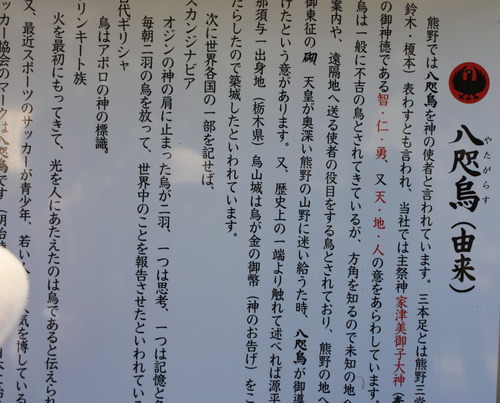 八咫烏(由来)
やたがらす
熊野では八咫烏を神の使者と言われています。三本足とは熊野三党
鈴木・榎本)表わすとも言われ、当社では主祭神家津美御子大神(素
の御神徳である智・仁・勇、又天・地・人の意をあらわしています。
烏は一般に不吉の鳥とされてきているが、方角を知るので未知の地へ
案内や、遠隔地へ送る使者の役目をする鳥とされており、熊野の地へ
御東征の砌 天皇が奥深い熊野の山野に迷い給うた時、八咫烏が御導
けたという意があります。又、歴史上の一端より触れて述べれば源平
那須与一出身地(栃木県)烏山城は烏が金の御幣(神のお告げ)をこ
たらしたので築城したといわれています。
次に世界各国の一部を記せば、
スカンジナビア
オジンの神の肩に止まった烏が二羽、一つは思考、一つは記憶と
毎朝二羽の烏を放って、世界中のことを報告させたといわれている
代ギリシャ
烏はアポロの神の標識。
リンキート族
火を最初にもってきて、光を人にあたえたのは烏であると伝えられ
又、最近スポーツのサッカーが青少年、若い
気を博している
ッカー協会のマークは八咫烏です(明治